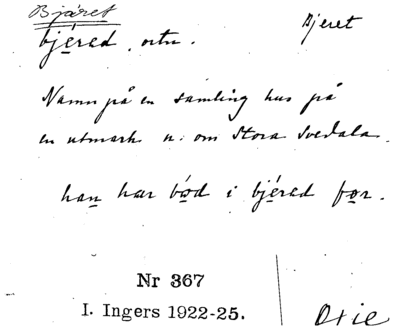 Bjäret
Bjeret
bjérad, ortn.
Namn på en samling hus på
en utmark n. om Stora Svedala.
han har bod i bjérad før.
Nr 367
I. Ingers 1922-25.
Oxie